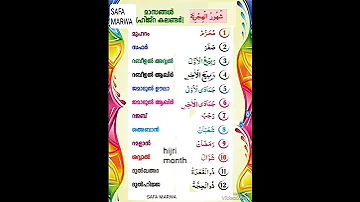 SAFA
MARWA
മാസങ്ങൾ
(ഹിജ്റ കലണ്ടർ)
شُهُورُ الْهِجْرِيَّةِ
മുഹറം مُحَرَّمْ 1
സഫർ صَفَرْ 2
റബീഉൽ അവ്വൽ رَبِيعُ الْأَوَّلْ 3
റബീഉൽ ആഖിർ رَبِيعُ الْآخِرْ 4
ജമാദുൽ ഊലാ جُمَادَى الْأُولَى 5
ജമാദുൽ ആഖിർ جُمَادَى الْآخِرْ 6
റജബ് رَجَبْ 7
ശഅബാൻ شَعْبَانْ 8
റമളാൻ رَمَضَانْ 9
ശവ്വാൽ شَوَّالْ 10
ദുൽഖഅദ ذُو الْقَعْدَة 11
ദുൽഹിജ്ജ ذُو الْحِجَّة 12
hijri
month
SAFA MARWA